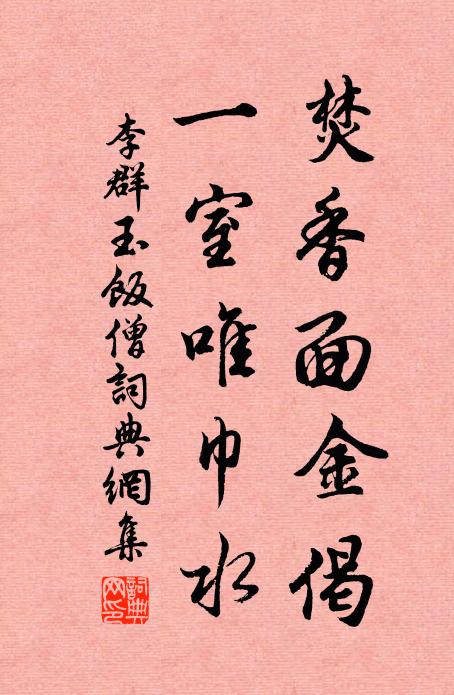 焚香面金偈
一室唯巾水
李群玉飯僧詞典網集
詞典網印